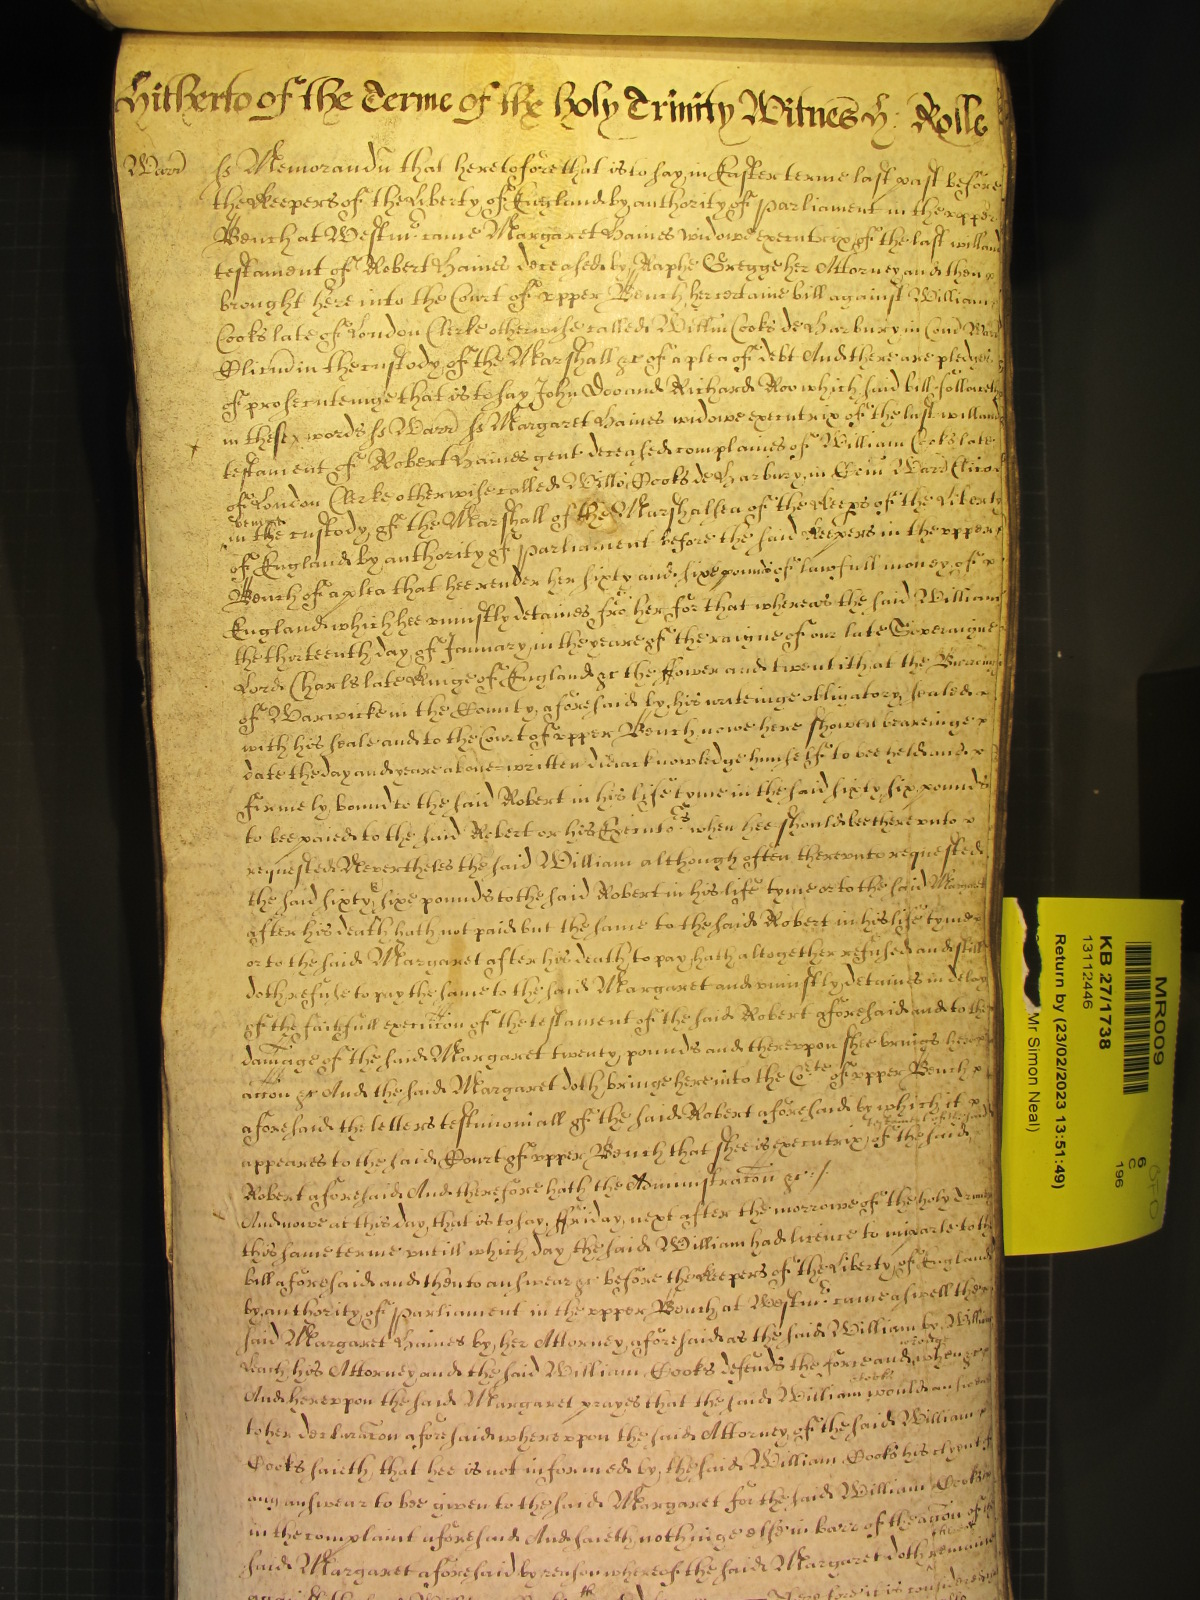 Hitherto of the Terme of the holy Trinity Witnes H: Rolle
Warr ss Memorandu that heretofore that is to say in Easter terme last past before
the Keepers of the Liberty of England by authority of Parliament in the vpper
Bench at Westmr came Margaret Haines widowe executrix of the last will and
testament of Robert Haines deceased by Raphe Gregge her Attorney and then
brought here into the Court of vpper Bench her certaine bill against William
Cooks late of London Clerke otherwise called Willm Cooks de Harbury in Com Warr
Clicum in the custody of the Marshall &c of a plea of debt And there are pledges
of prosecuteinge that is to say John Doo and Richard Roo which said bill followeth
in these words ss Warr ss Margaret Haines widowe executrix of the last will and
testament of Robert Haines gent deceased complaines of William Cooks late
of London Clerke otherwise called Willm Cooks de Harbury in Com Warr Clicu
beinge
in the custody of the Marshall of the Marshalsea of the Keeps of the Liberty
of England by authority of Parliament before the said Keepers in the vpper
Bench of a plea that hee render her sixty and sixe pounds of lawfull money of
England which hee uniustly detaines fro her for that whereas the said William
the thirteenth day of January in the yeare of the raigne of our late Soveraigne
Lord Charls late Kinge of England &c the fower and twentith at the Burrough
of Warwicke in the County aforesaid by his writeinge obligatory sealed
with his seale and to the Court of vpper Bench nowe here showen beareinge
date the day and yeare above written did acknowledge himselfe to bee held and
firmely bound to the said Robert in his life tyme in the said sixty six pounds
to bee paied to the said Robert or his Executors when hee should bee therevnto
requested Nevertheles the said William although often therevnto requested
the said sixty & sixe pounds to the said Robert in his life tyme or to the said Margaret
after his death hath not paid but the same to the said Robert in his life tyme
or to the said Margaret after his death to pay hath altogether refused and still
doth refuse to pay the same to the said Margaret and uniustly detaines in delay
of the faithfull execution of the testament of the said Robert aforesaid and to the
damage of the said Margaret twenty pounds and therevpon shee brings here
accon &c And the said Margaret doth bringe here into the Corte of vpper Bench
aforesaid the letters testimoniall of the said Robert aforesaid by which it
testament of the said
appeares to the said Court of vpper Bench that shee is executrix of the said
Robert aforesaid And therefore hath the Administracon &c:/
And nowe at this day that is to say Friday next after the morrowe of the holy Trinity
this same terme untill which day the said William had licence to imparle to the
bill aforesaid and then to answear &c before the Keepers of the Liberty of England
by authority of Parliament in the vpper Bench at Westmr came aswell the
said Margaret Haines by her Attorney aforesaid as the said William by William
Leach his Attorney and the said William Cooks defends the force and wronge when &c
And herevpon the said Margaret prayes that the said William Cooks would answear
to her declaracon aforesaid wherevpon the said Attorney of the said William
Cooks saieth that hee is not informed by the said William Cooks his clyent of
any answear to bee given to the said Margaret for the said William Cooks
in the complaint aforesaid And saieth nothinge else in barr of the accon of the
said Margaret aforesaid by reason whereof the said Margaret doth remaine
Therefore it is considered
MR009
KB 27/1738
13112446
Return by (23/02/2023 13:51:49)
Mr Simon Neal)
6
C
196